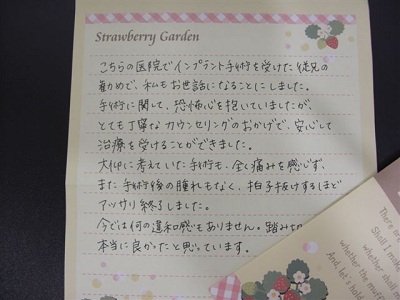 Strawberry Garden
こちらの医院でインプラント手術を受けた従兄の
勧めで、私もお世話になることにしました。
手術に関して、恐怖心を抱いていましたが、
とても丁寧なカウンセリングのおかげで、安心して
治療を受けることができました。
大仰に考えていた手術も、全く痛みを感じず、
また手術後の腫れもなく、拍子抜けするほど
アッサリ終了しました。
今では何の違和感もありません。踏み切
本当に良かったと思っています。
There are
Shall I make
whether the
whether shall
And, he's